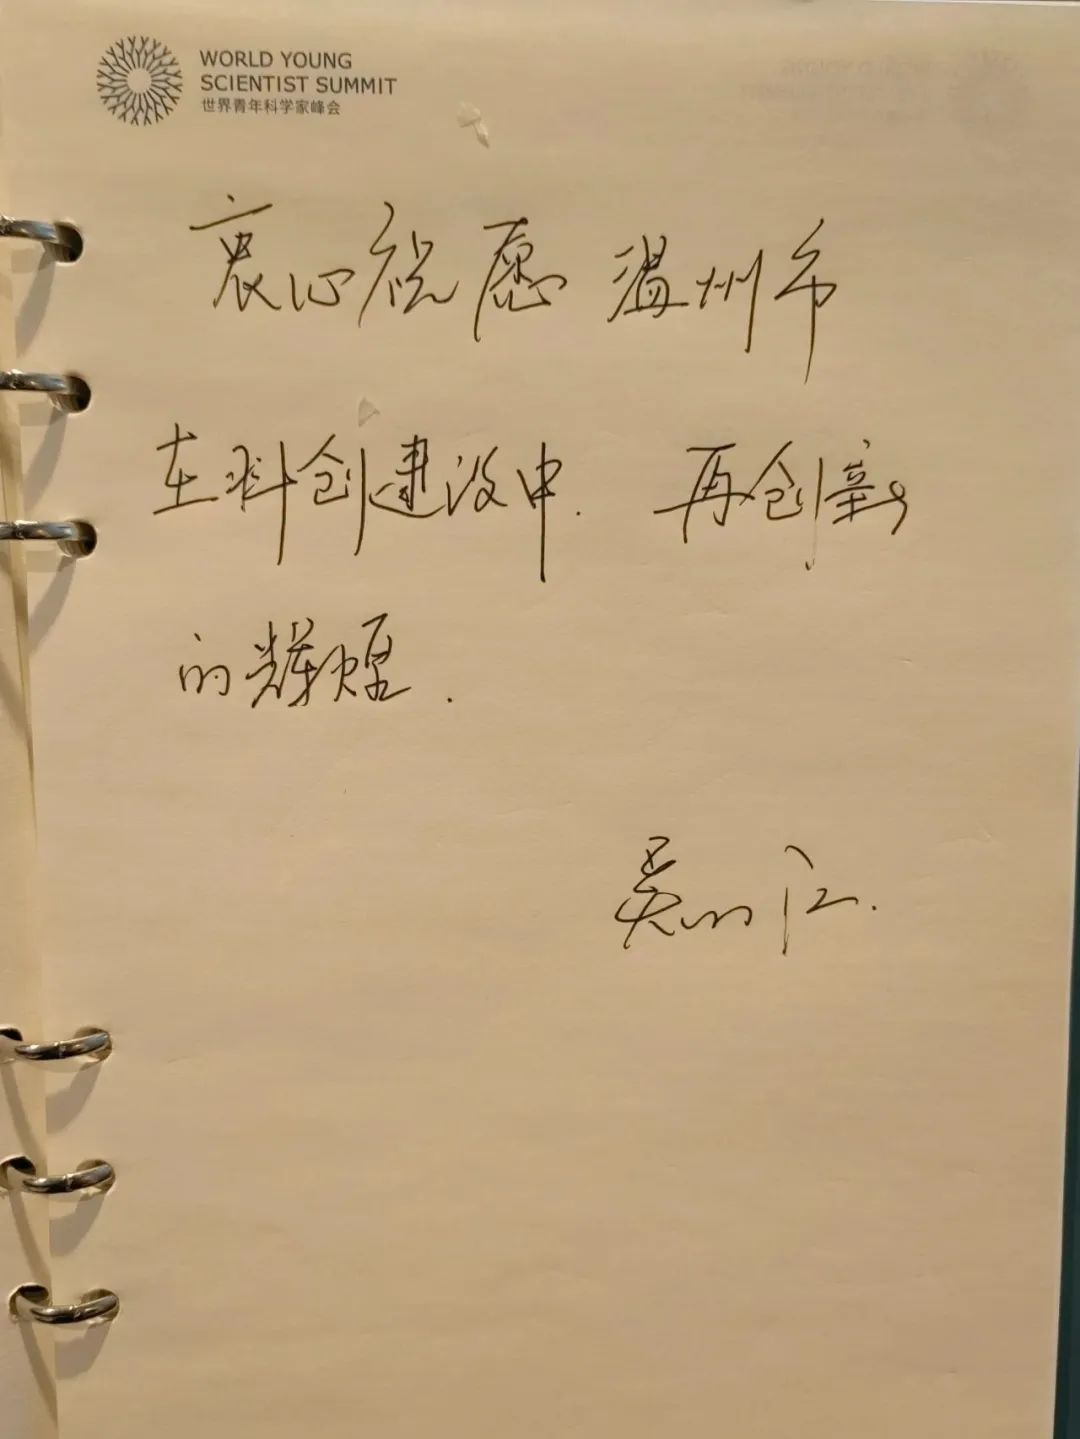 WORLD YOUNG
SCIENTIST SUMMIT
世界青年科学家峰会
衷心祝愿温州市
在科创建设中. 再创新
的辉煌.
吴明江.